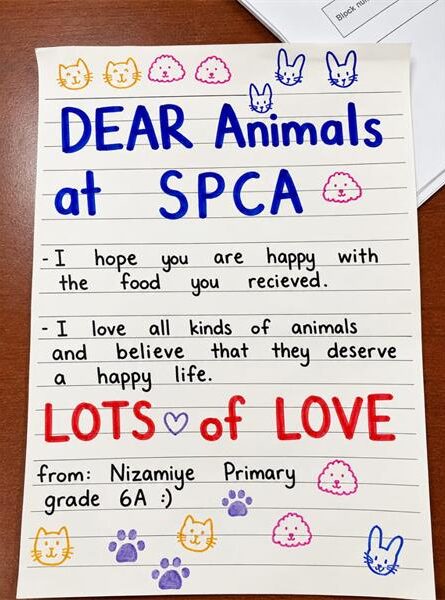 Block nu
DEAR Animals
at SPCA
- I hope you are happy with
the food you recieved.
- I love all kinds of animals
and believe that they deserve
a happy life.
LOTS of LOVE
from: Nizamiye Primary
grade 6A :)